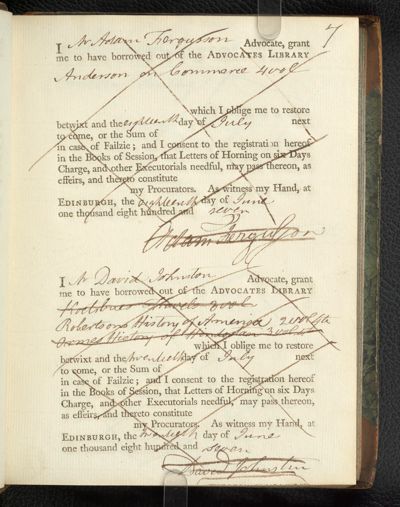 7
I Mr Adam Fergusson Advocate, grant
me to have borrowed out of the ADVOCATES LIBRARY
Anderson on Commerce 4 vols
which I oblige me to restore
betwixt and the eighteenth day of July next
to come, or the Sum of
in case of Failzie; and I consent to the registration hereof
in the Books of Session, that Letters of Horning on six Days
Charge, and other Executorials needful, may pass thereon, as
effeirs, and thereto constitute
my Procurators. As witness my Hand, at
EDINBURGH, the eighteenth day of June
one thousand eight hundred and seven
Adam Fergusson
I Mr David Johnston Advocate, grant
me to have borrowed out of the ADVOCATES LIBRARY
Travels 3 vol
Robertsons History of America 2 vol
History of 3 vol
which I oblige me to restore
betwixt and the twentieth day of July next
to come, or the Sum of
in case of Failzie; and I consent to the registration hereof
in the Books of Session, that Letters of Horning on six Days
Charge, and other Executorials needful, may pass thereon,
as effeirs, and thereto constitute
my Procurators. As witness my Hand, at
EDINBURGH, the twentieth day of June
one thousand eight hundred and seven
David Johnston